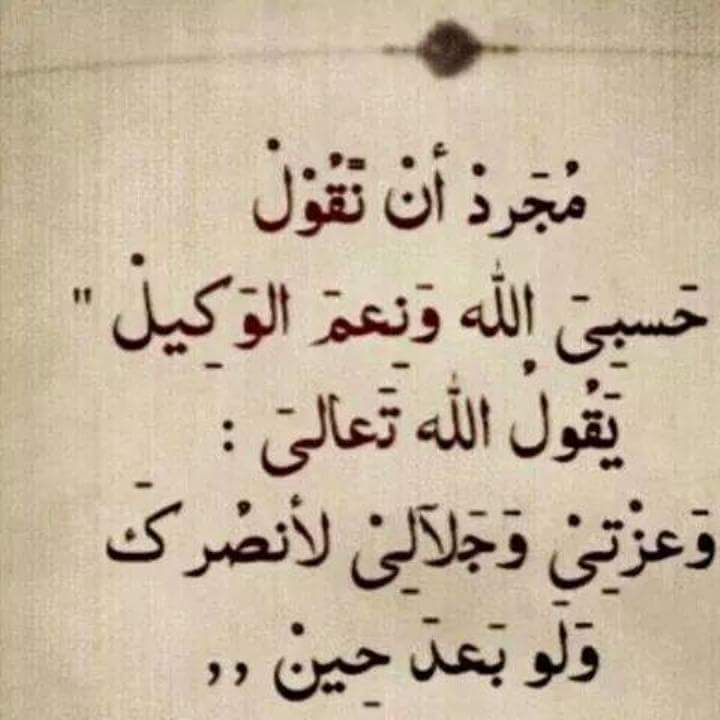 مُجَردْ أنْ نَّقُوْلْ
حَسبِيَ الله وَنِعمَ الوَكِيلْ "
يَقُولُ الله تَعالىَ :
وَعزْتِيْ وَجَلآلِيْ لأنصُركَ
وَلَو بَعدَ حِينْ ,,